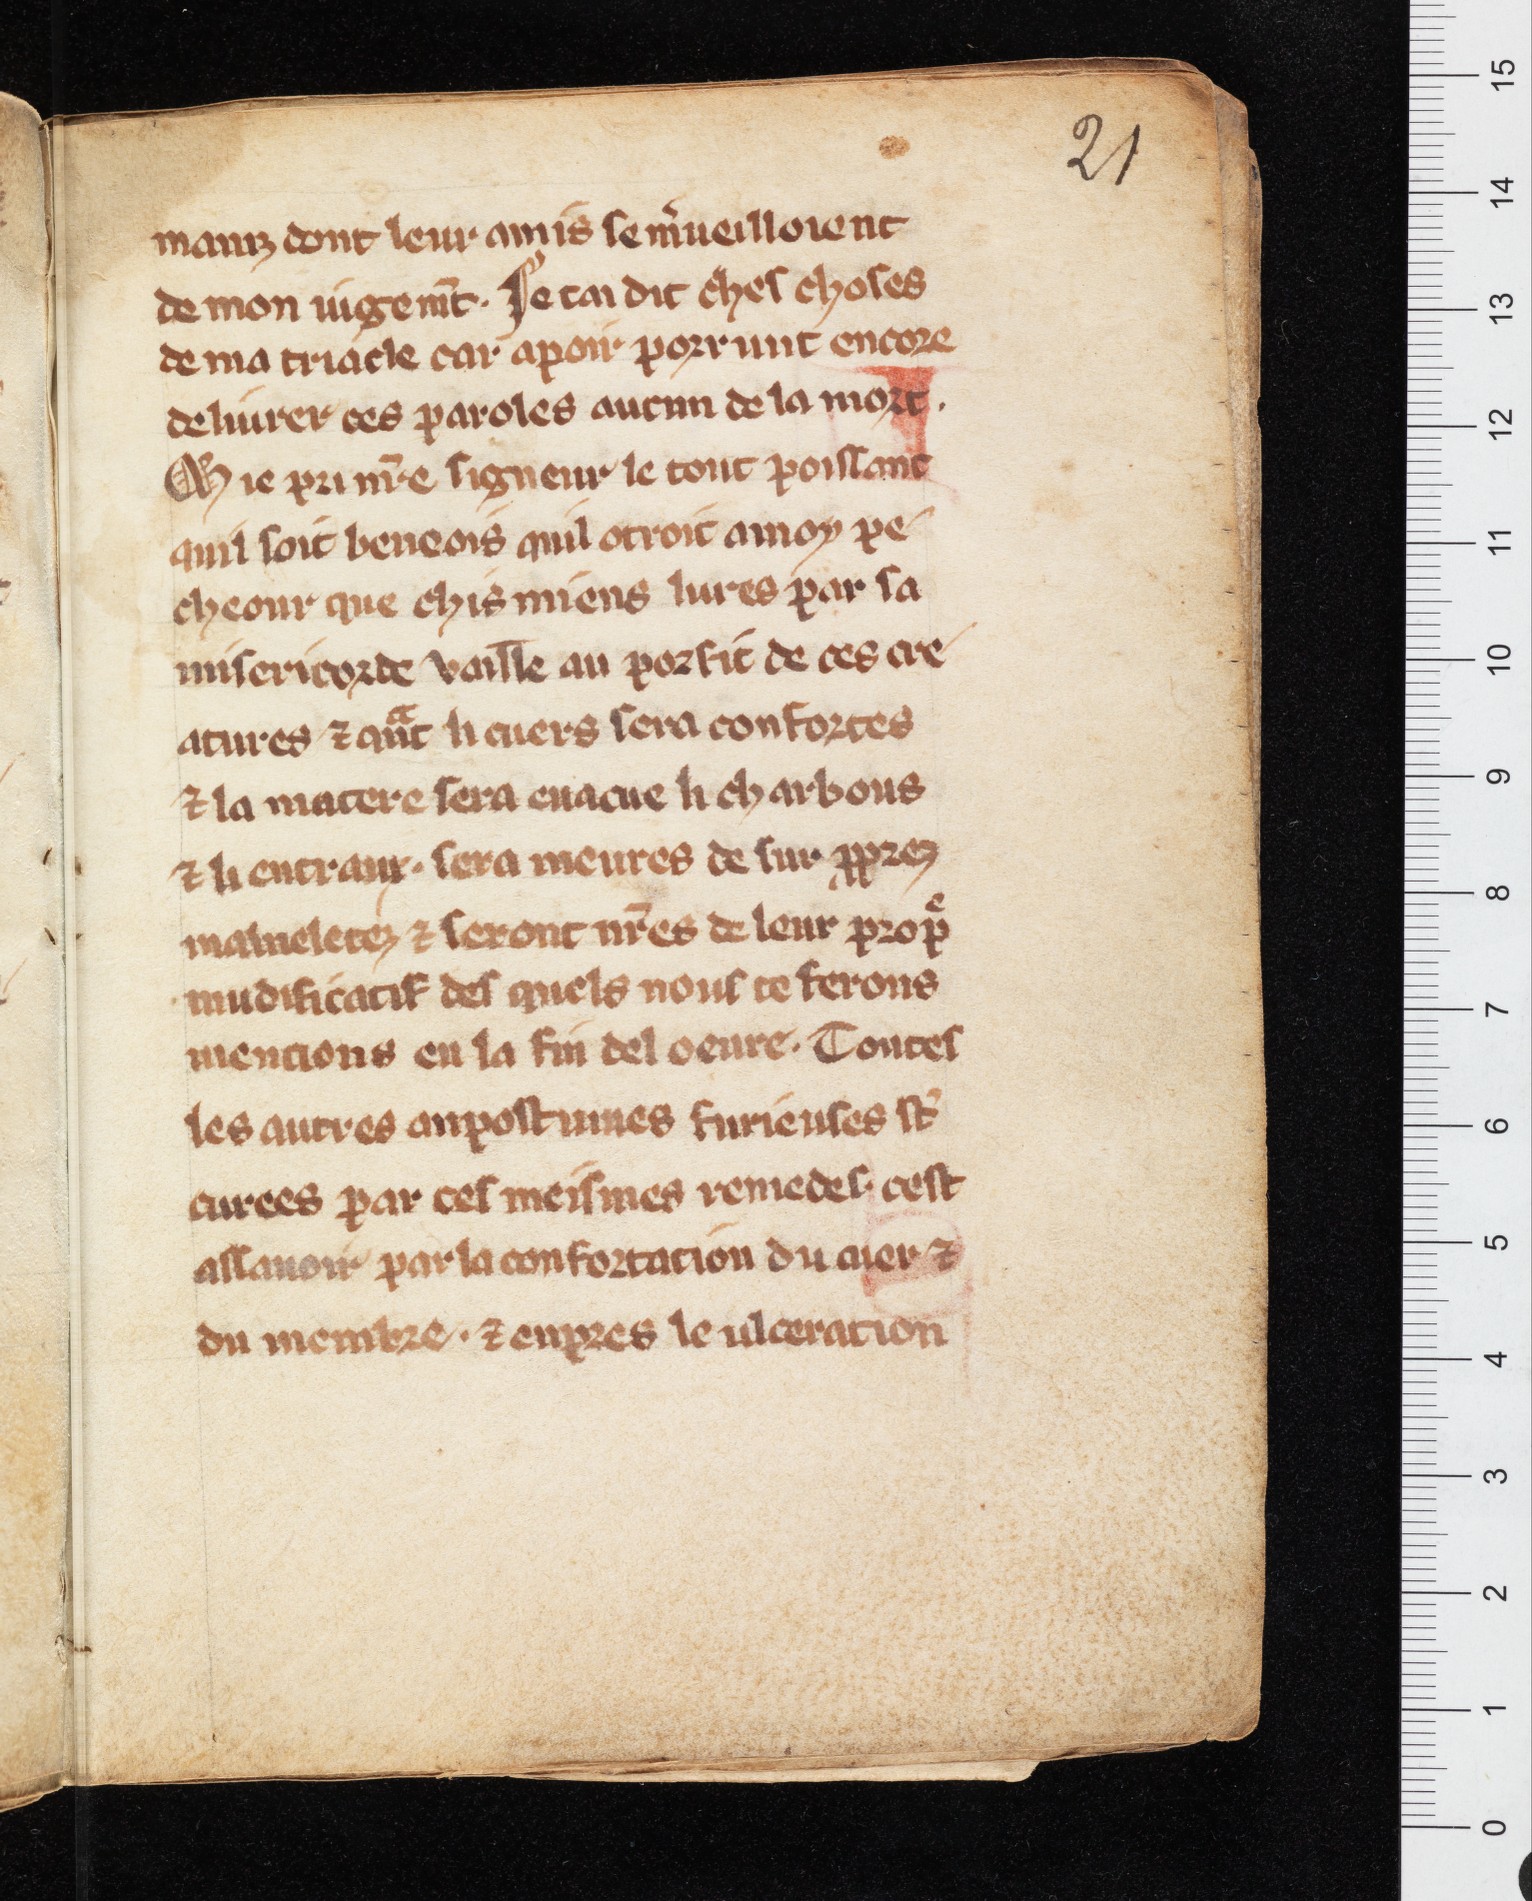 21
mauz dont leur amis se m̃ueilloient
de mon iugem̃t. Je tai dit ches choses
de ma triacle car apoir porrunt encore
deliurer ces paroles aucun de la mort.
ie pri nr̃e signeur le tout poissant
quil soit beneois quil otroit a moy pe
cheour que chis miens liures par sa
misericorde vaille au porfit de ces cre
atures ⁊ qᵃnt li cuers sera confortes
⁊ la matere sera euacue li charbons
⁊ li entrax. sera meures de sur
⁊ seront nr̃es de leur
mudificatif des quels nous te ferons
mencions en la fin del oeure. Toutes
les autres anpostumes furieuses st̃
curees par ces meismes remedes. cest
assauoir par la confortation du cuer ⁊
du membre. ⁊ enpres le ulceration
15
14
13
12
11
10
9
8
7
6
5
4
3
2
1
0